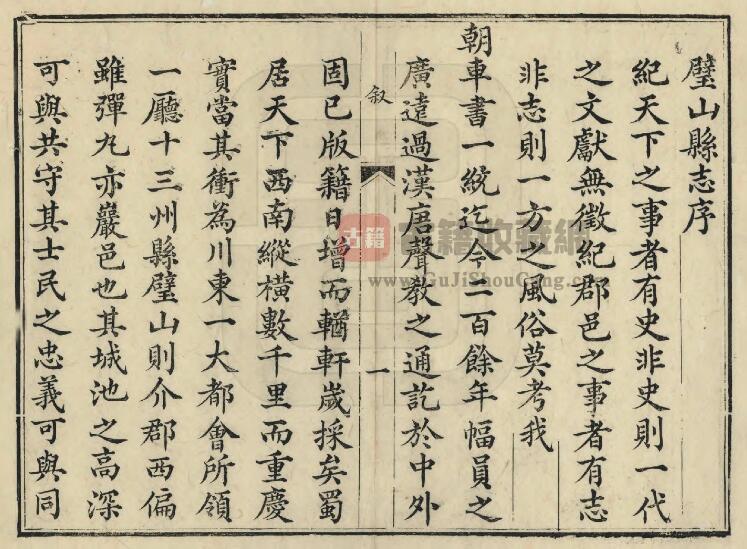 璧山縣志序
紀天下之事者有史非史則一代
之文獻無徵紀郡邑之事者有志
非志則一方之風俗莫考我
朝車書一統迄今二百餘年幅員之
廣遠過漢唐聲教之通訖於中外
叙
一
固已版籍日增而輶軒歲採矣蜀
居天下西南縱橫數千里而重慶
實當其衝為川東一大都會所領
一廳十三州縣璧山則介郡西偏
雖彈丸亦巖邑也其城池之高深
可與共守其士民之忠義可與同
古籍
古籍收藏網
www.GuJiShouCang.com